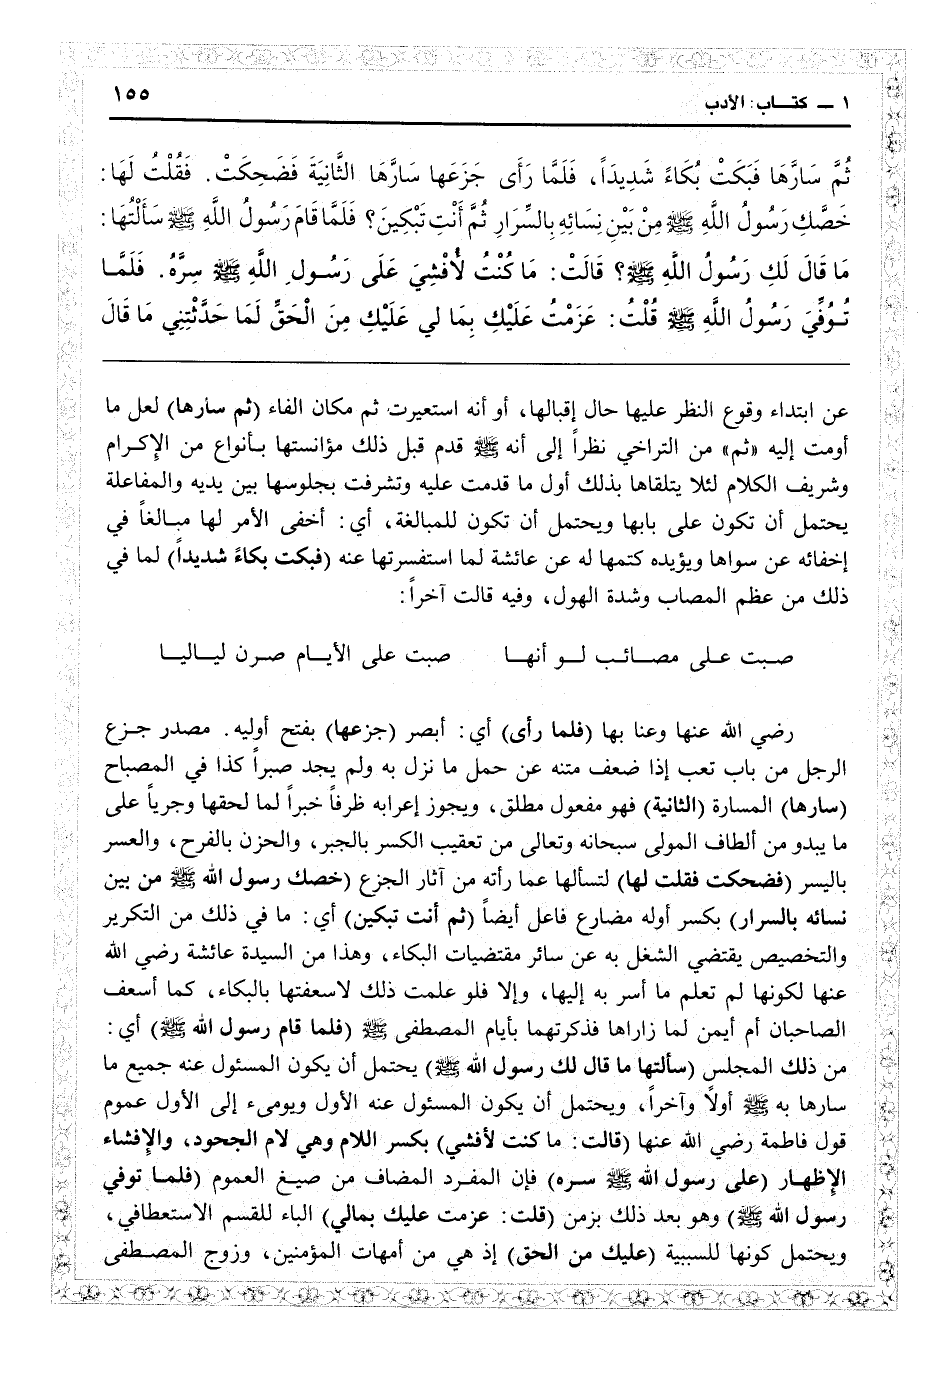 ١ ــ كتــاب: الأدب
١٥٥
ثُمَّ سَارَّهَا فَبَكَتْ بُكَاءً شَدِيداً، فَلَمَّا رَأَى جَزَعَها سَارَّهَا الثَّانِيَةَ فَضَحِكَتْ. فَقُلْتُ لَهَا:
خَصَّكِ رَسُولُ اللَّهِ ﷺ مِنْ بَيْنِ نِسَائِهِ بِالسِّرَارِ ثُمَّ أَنْتِ تَبْكِينَ؟ فَلَمَّا قَامَ رَسُولُ اللَّهِ ﷺ سَأَلْتُهَا:
مَا قَالَ لَكِ رَسُولُ اللَّهِ ﷺ؟ قَالَتْ: مَا كُنْتُ لأُفْشِيَ عَلَى رَسُـولِ اللَّهِ ﷺ سِرَّهُ. فَلَمَّـا
تُـوُفِّيَ رَسُولُ اللَّهِ ﷺ قُلْتُ: عَزَمْتُ عَلَيْكِ بِمَا لي عَلَيْكِ مِنَ الْحَقِّ لَمَا حَدَّثْتِنِي مَا قَالَ
عن ابتداء وقوع النظر عليها حال إقبالها، أو أنه استعيرت ثم مكان الفاء (ثم سارها) لعل ما
أومت إليه «ثم» من التراخي نظراً إلى أنه ﷺ قدم قبل ذلك مؤانستها بـأنواع من الإكـرام
وشريف الكلام لئلا يتلقاها بذلك أول ما قدمت عليه وتشرفت بجلوسها بين يديه والمفاعلة
يحتمل أن تكون على بابها ويحتمل أن تكون للمبالغة، أي: أخفى الأمر لها مبـالغاً في
إخفائه عن سواها ويؤيده كتمها له عن عائشة لما استفسرتها عنه (فبكت بكاءً شديداً) لما في
ذلك من عظم المصاب وشدة الهول، وفيه قالت آخراً:
صـبت عـلـى مصـائـب لـو أنهـا صبت على الأيـام صـرن ليـاليـا
رضي الله عنها وعنا بها (فلما رأى) أي: أبصر (جزعها) بفتح أوليه. مصدر جـزع
الرجل من باب تعب إذا ضعف متنه عن حمل ما نزل به ولم يجد صبراً كذا في المصباح
(سارها) المسارة (الثانية) فهو مفعول مطلق، ويجوز إعرابه ظرفاً خبراً لما لحقها وجرياً على
ما يبدو من ألطاف المولى سبحانه وتعالى من تعقيب الكسر بالجبر، والحزن بالفرح، والعسر
باليسر (فضحكت فقلت لها) لتسألها عما رأته من آثار الجزع (خصك رسول الله ﷺ من بين
نسائه بالسرار) بكسر أوله مضارع فاعل أيضاً (ثم أنت تبكين) أي: ما في ذلك من التكرير
والتخصيص يقتضي الشغل به عن سائر مقتضيات البكاء، وهذا من السيدة عائشة رضي الله
عنها لكونها لم تعلم ما أسر به إليها، وإلا فلو علمت ذلك لاسعفتها بالبكاء، كما أسعف
الصاحبان أم أيمن لما زاراها فذكرتهما بأيام المصطفى ﷺ (فلما قام رسول الله ﷺ) أي:
من ذلك المجلس (سألتها ما قال لك رسول الله ﷺ) يحتمل أن يكون المسئول عنه جميع ما
سارها به ﷺ أولاً وآخراً، ويحتمل أن يكون المسئول عنه الأول ويومىء إلى الأول عموم
قول فاطمة رضي الله عنها (قالت: ما كنت لأفشي) بكسر اللام وهي لام الجحود، والإفشاء
الإظهـار (على رسول الله ﷺ سـره) فإن المفـرد المضاف من صيـغ العموم (فلمـا توفي
رسول الله ﷺ) وهو بعد ذلك بزمن (قلت: عزمت عليك بمالي) الباء للقسم الاستعطافي،
ويحتمل كونها للسببية (عليك من الحق) إذ هي من أمهات المؤمنين، وزوج المصـطفى